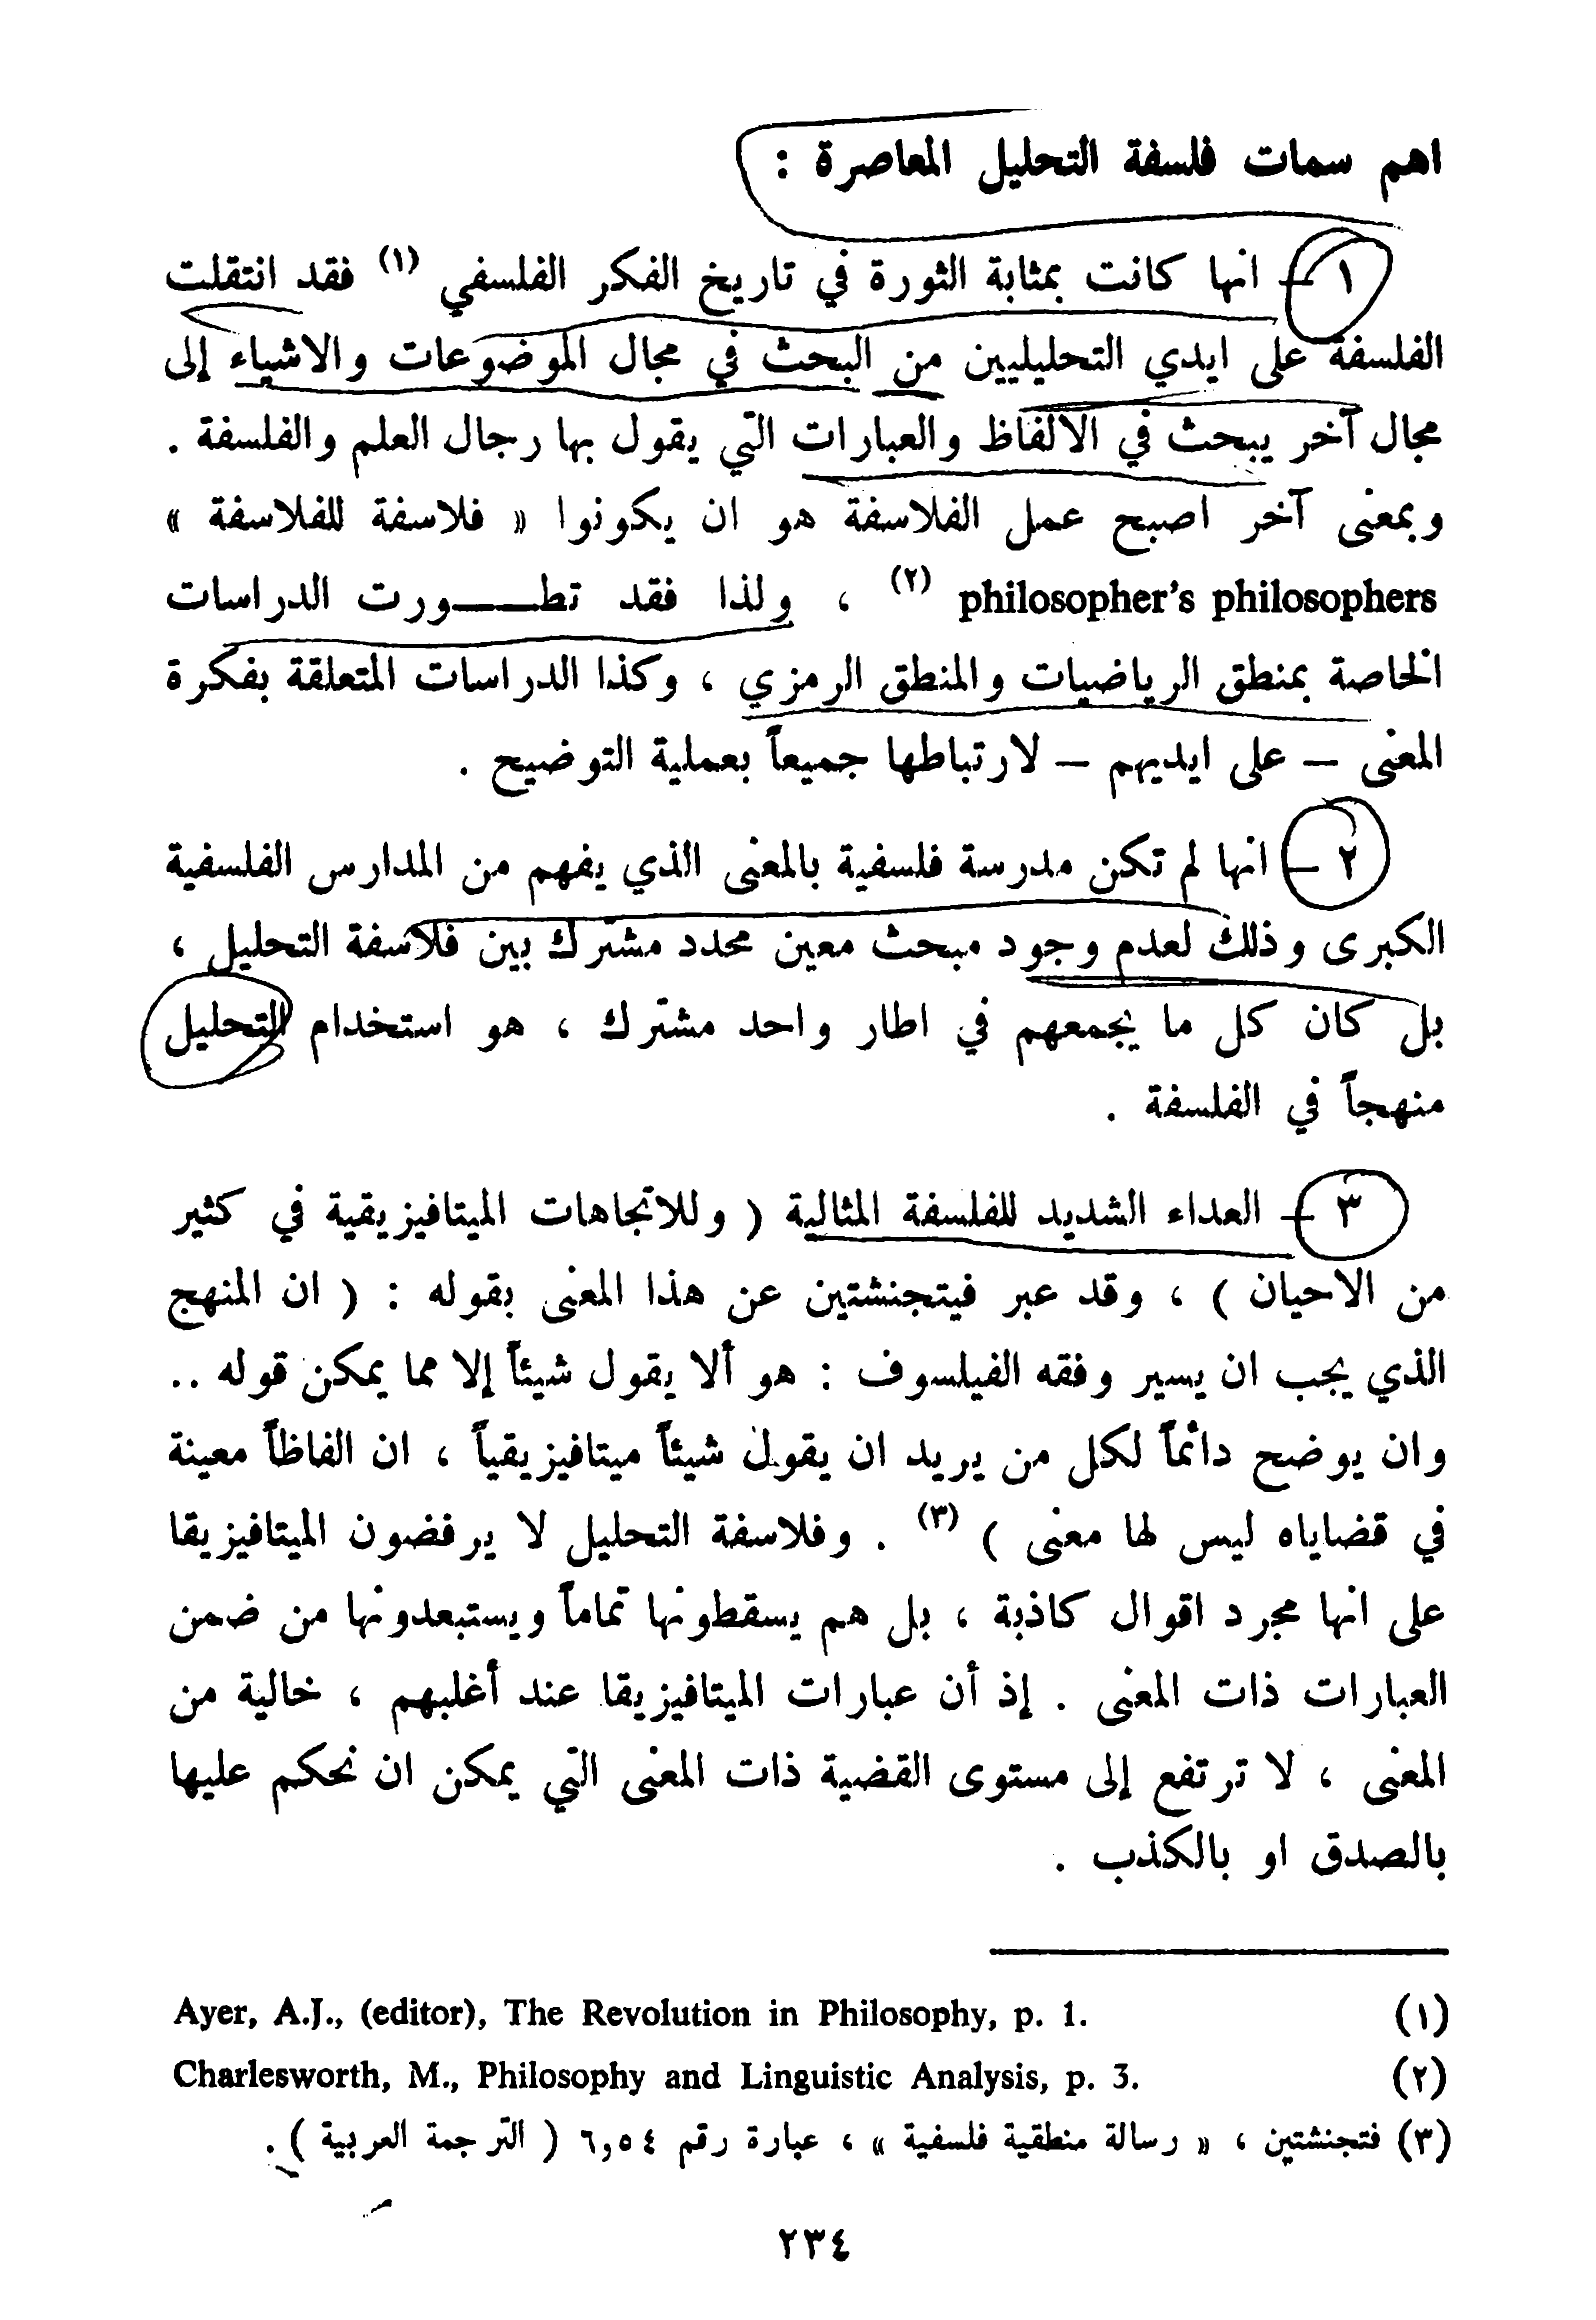 اهم سمات فلسفة التحليل المعاصرة :
١ – انها كانت بمثابة الثورة في تاريخ الفكر الفلسفي (١) فقد انتقلت
الفلسفة على ايدي التحليليين من البحث في مجال الموضوعات والاشياء إلى
مجال آخر يبحث في الالفاظ والعبارات التي يقول بها رجال العلم والفلسفة .
وبمعنى آخر اصبح عمل الفلاسفة هو ان يكونوا « فلاسفة للفلاسفة »
philosopher's philosophers (٢) ، ولذا فقد تطـــورت الدراسات
الخاصة بمنطق الرياضيات والمنطق الرمزي ، وكذا الدراسات المتعلقة بفكرة
المعنى – على ايديهم – لارتباطها جميعاً بعملية التوضيح .
٢ – انها لم تكن مدرسة فلسفية بالمعنى الذي يفهم من المدارس الفلسفية
الكبرى وذلك لعدم وجود مبحث معين محدد مشترك بين فلاسفة التحليل ،
بل كان كل ما يجمعهم في اطار واحد مشترك ، هو استخدام التحليل
منهجاً في الفلسفة .
٣ – العداء الشديد للفلسفة المثالية ( وللاتجاهات الميتافيزيقية في كثير
من الاحيان ) ، وقد عبر فيتجنشتين عن هذا المعنى بقوله : ( ان المنهج
الذي يجب ان يسير وفقه الفيلسوف : هو ألا يقول شيئاً إلا مما يمكن قوله ..
وان يوضح دائماً لكل من يريد ان يقول شيئاً ميتافيزيقياً ، ان الفاظاً معينة
في قضاياه ليس لها معنى ) (٣) . وفلاسفة التحليل لا يرفضون الميتافيزيقا
على انها مجرد اقوال كاذبة ، بل هم يسقطونها تماماً ويستبعدونها من ضمن
العبارات ذات المعنى . إذ أن عبارات الميتافيزيقا عند أغلبهم ، خالية من
المعنى ، لا ترتفع إلى مستوى القضية ذات المعنى التي يمكن ان نحكم عليها
بالصدق او بالكذب .
(١) Ayer, A.J., (editor), The Revolution in Philosophy, p. 1.
(٢) Charlesworth, M., Philosophy and Linguistic Analysis, p. 3.
(٣) فتجنشتين ، « رسالة منطقية فلسفية » ، عبارة رقم ٦,٥٤ ( الترجمة العربية ) .
٢٣٤